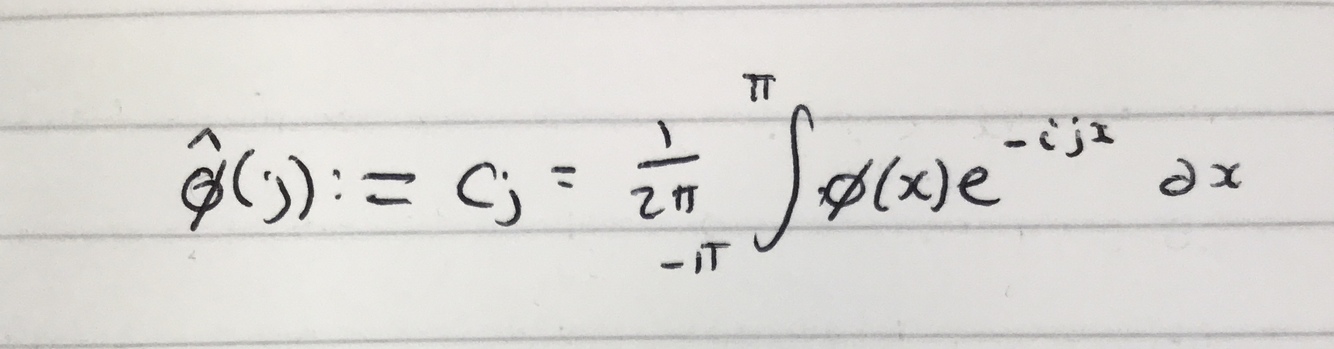 $\hat{\phi}(j) := c_j = \frac{1}{2\pi} \int_{-\pi}^{\pi} \phi(x) e^{-ijx} \, \partial x$